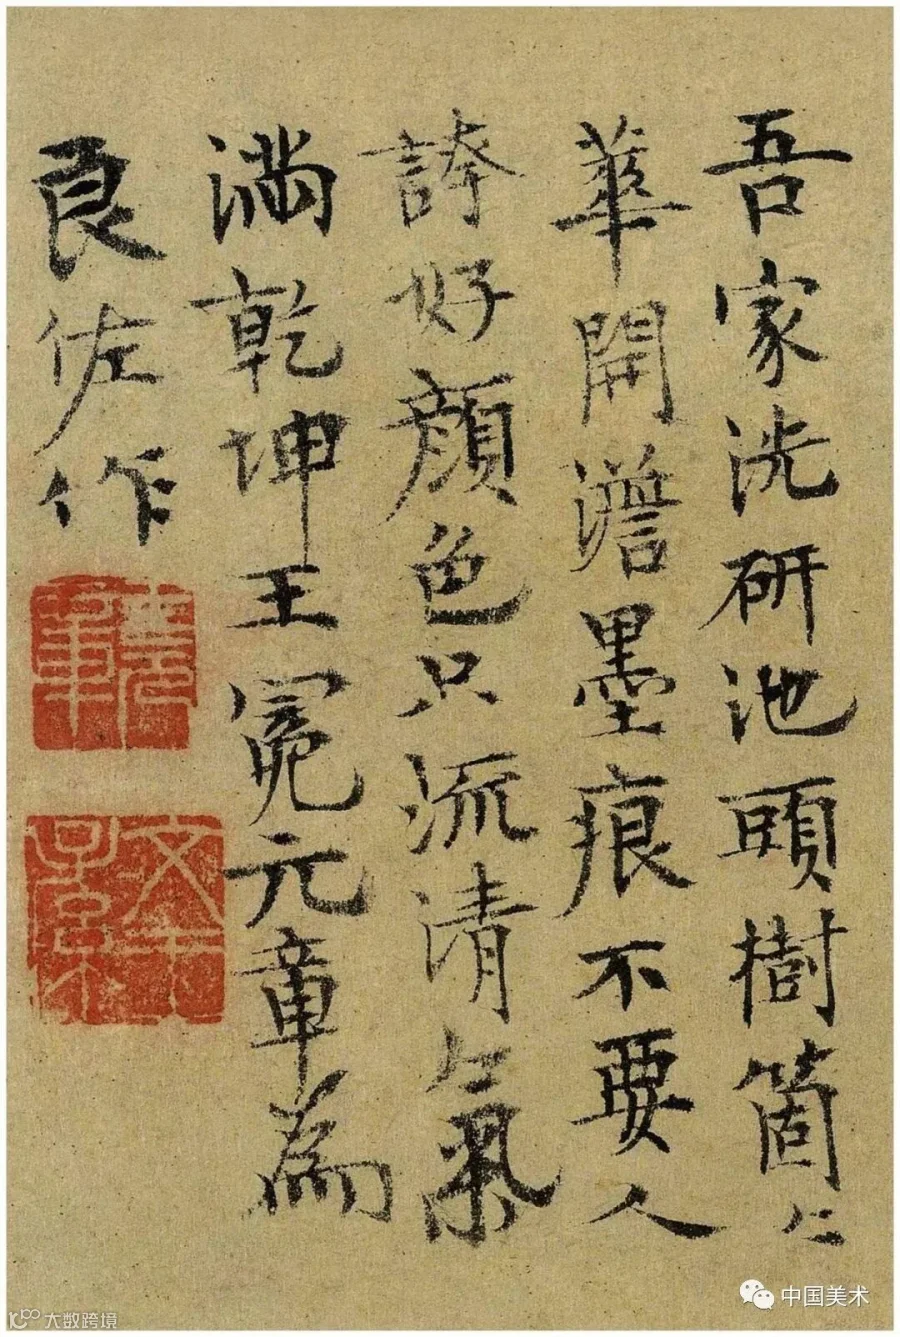 吾家洗研池頭樹箇〻
華開澹墨痕不要人
誇好顔色只流清氣
滿乾坤王冕元章為
良佐作
元章
文王子孫
中国美术
大数跨境